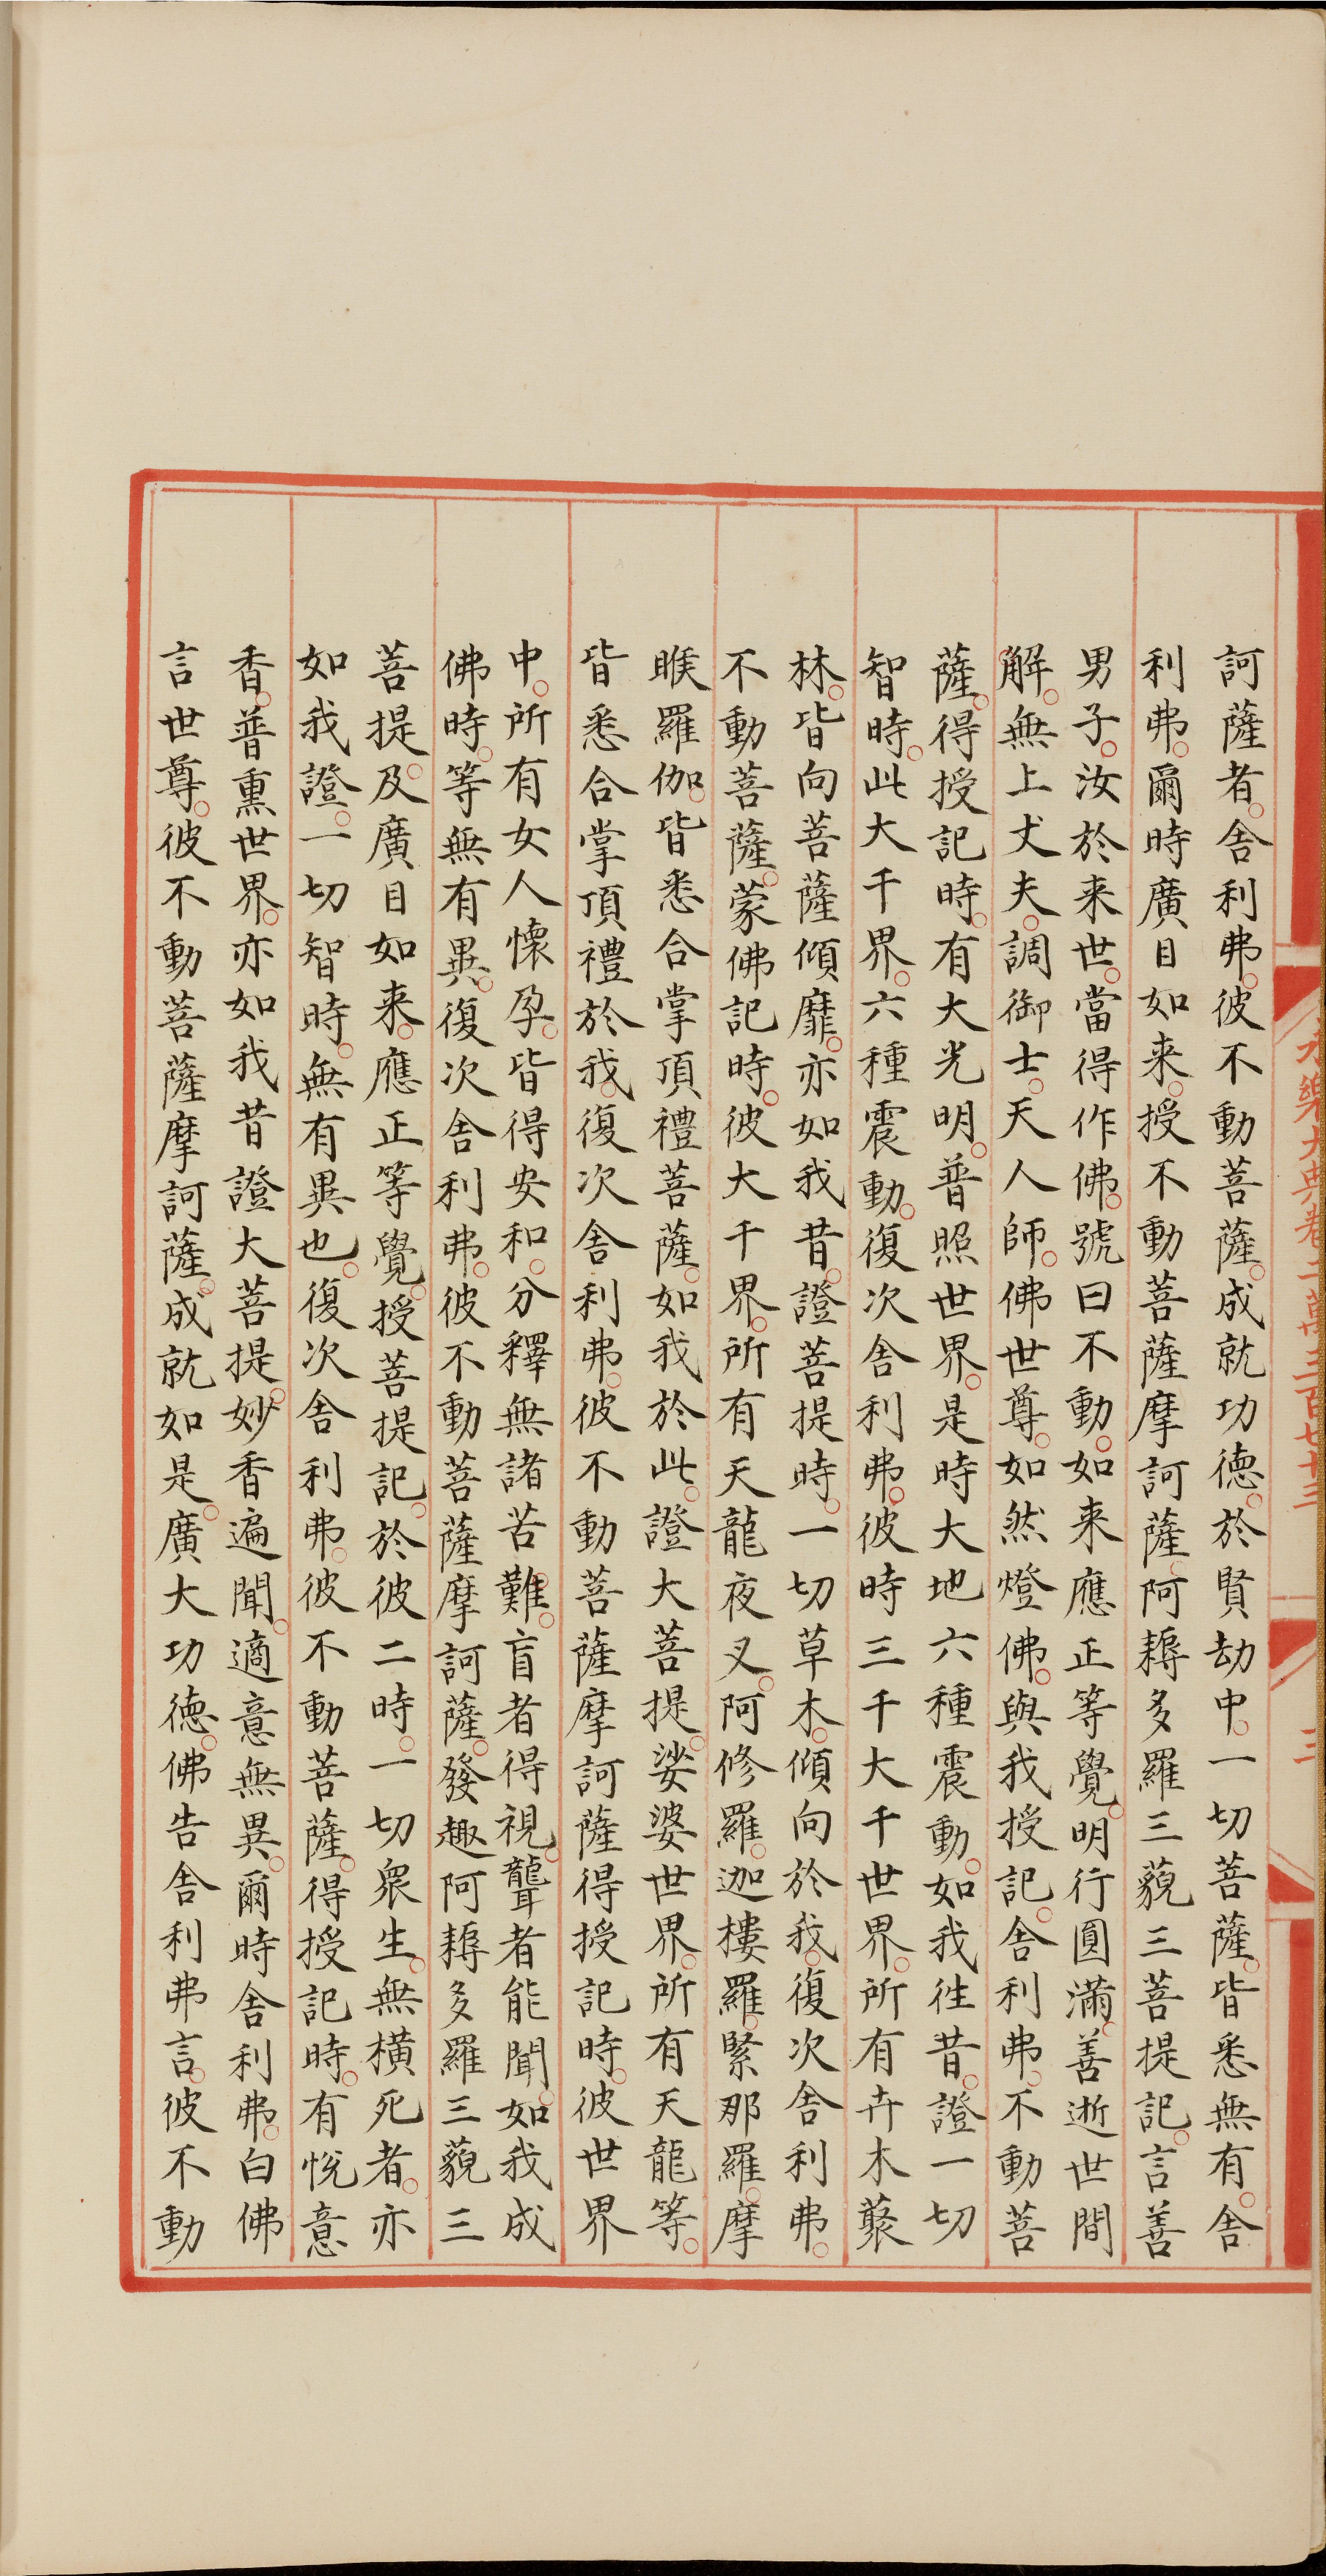 訶薩者。舍利弗。彼不動菩薩。成就功德。於賢劫中。一切菩薩。皆悉無有。舍
利弗。爾時廣目如来。授不動菩薩摩訶薩。阿耨多羅三藐三菩提記。言善
男子。汝於来世。當得作佛。號曰不動。如来應正等覺。明行圓滿。善逝世間
解。無上丈夫。調御士。天人師。佛世尊。如然燈佛。與我授記。舍利弗。不動菩
薩。得授記時。有大光明。普照世界。是時大地六種震動。如我徃昔。證一切
智時。此大千界。六種震動。復次舍利弗。彼時三千大千世界。所有卉木藂
林。皆向菩薩傾靡。亦如我昔。證菩提時。一切草木。傾向於我。復次舍利弗。
不動菩薩。蒙佛記時。彼大千界。所有天龍夜叉。阿修羅。迦樓羅。緊那羅。摩
睺羅伽。皆悉合掌頂禮菩薩。如我於此。證大菩提。娑婆世界。所有天龍等。
皆悉合掌頂禮於我。復次舍利弗。彼不動菩薩摩訶薩得授記時。彼世界
中。所有女人懷孕。皆得安和。分釋無諸苦難。盲者得視。聾者能聞。如我成
佛時。等無有異。復次舍利弗。彼不動菩薩摩訶薩。發趣阿耨多羅三藐三
菩提。及廣目如来。應正等覺。授菩提記。於彼二時。一切衆生。無橫死者。亦
如我證。一切智時。無有異也。復次舍利弗。彼不動菩薩。得授記時。有悅意
香。普熏世界。亦如我昔證大菩提。妙香遍聞。適意無異。爾時舍利弗。白佛
言世尊。彼不動菩薩摩訶薩。成就如是。廣大功德。佛告舍利弗言。彼不動
永樂大典卷二萬三百七十三
三